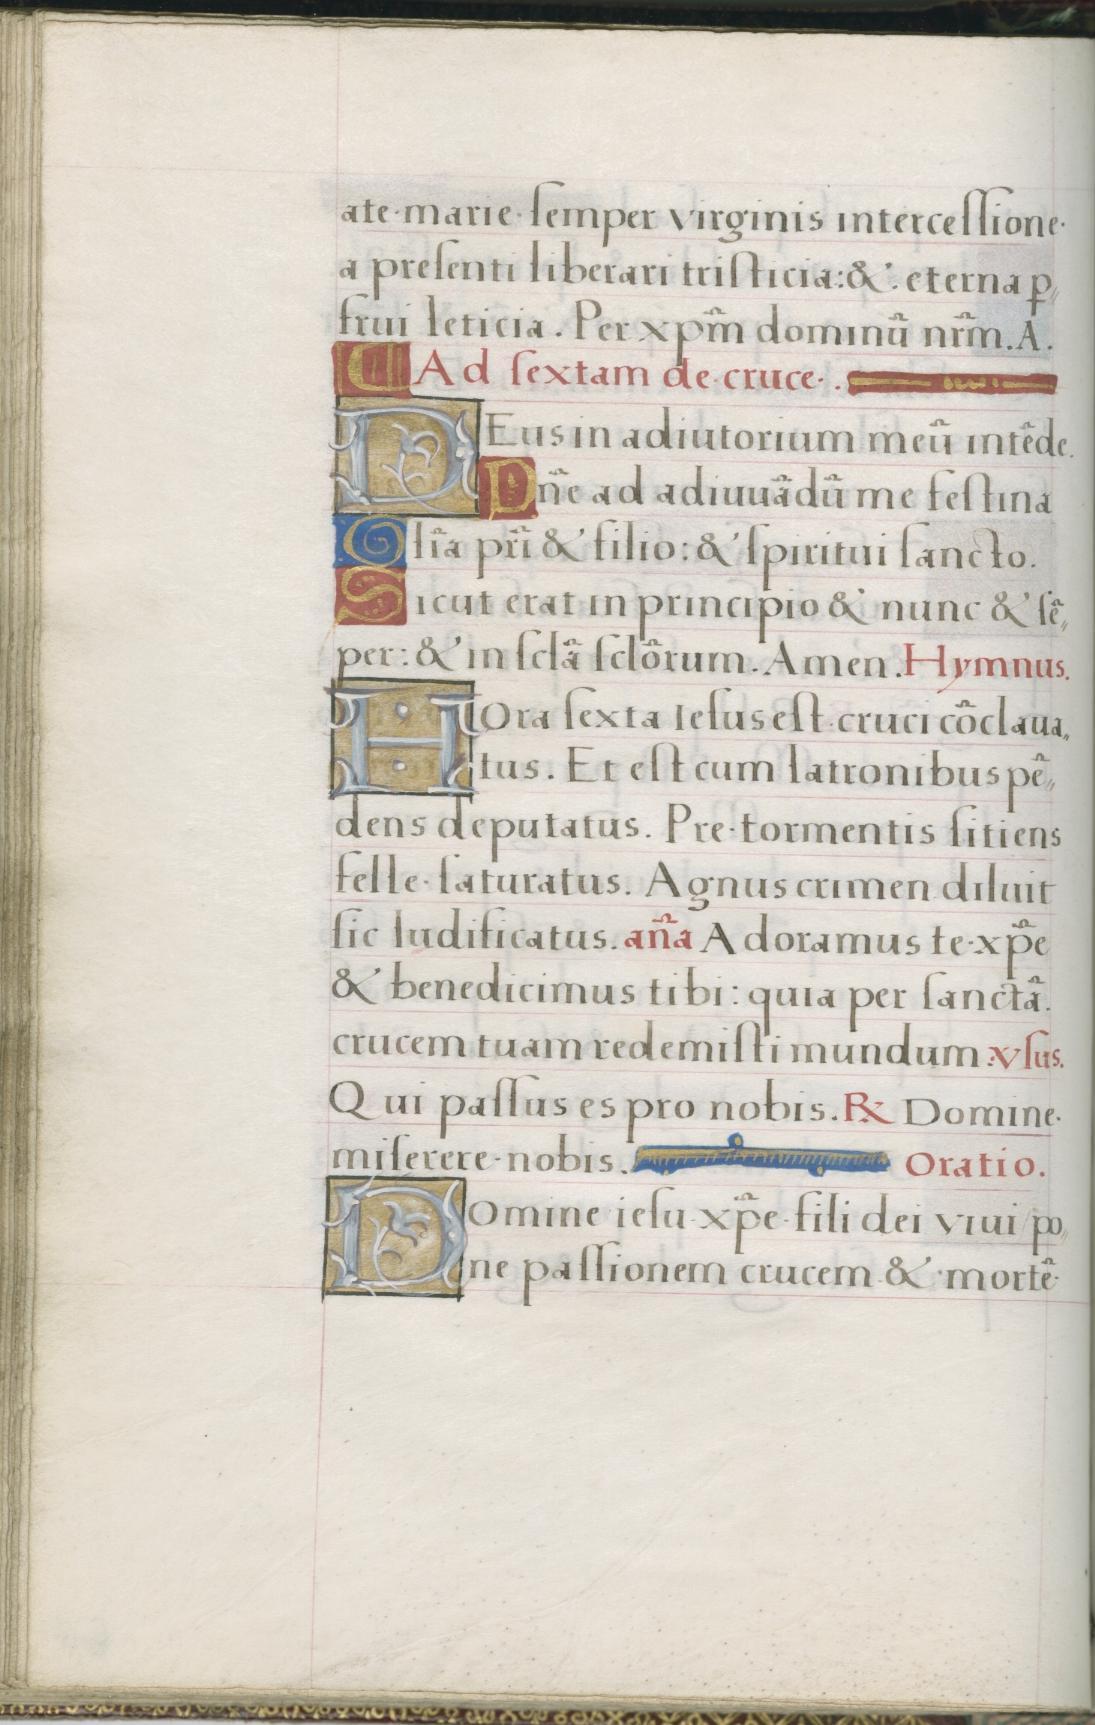 ate marie semper virginis intercessione
a presenti liberari tristicia: & eterna p̲
frui leticia. Per xp̃m dominũ nr̃m. A.
Ad sextam de cruce.
DEus in adiutorium meũ intẽde.
Dñe ad adiuuãdũ me festina
Glĩa pr̃i & filio: & spiritui sancto.
Sicut erat in principio & nunc & sẽ
per: & in sclã sclõrum. Amen. Hymnus.
HOra sexta Iesus est cruci cõclaua
tus. Et est cum latronibus pẽ
dens deputatus. Pre tormentis sitiens
felle saturatus. Agnus crimen diluit
sic ludificatus. añа Adoramus te xp̃e
& benedicimus tibi: quia per sanctã
crucem tuam redemisti mundum vsus.
Qui passus es pro nobis. ℞ Domine
miserere nobis. Oratio.
DOmine iesu xp̃e fili dei viui po
ne passionem crucem & mortẽ